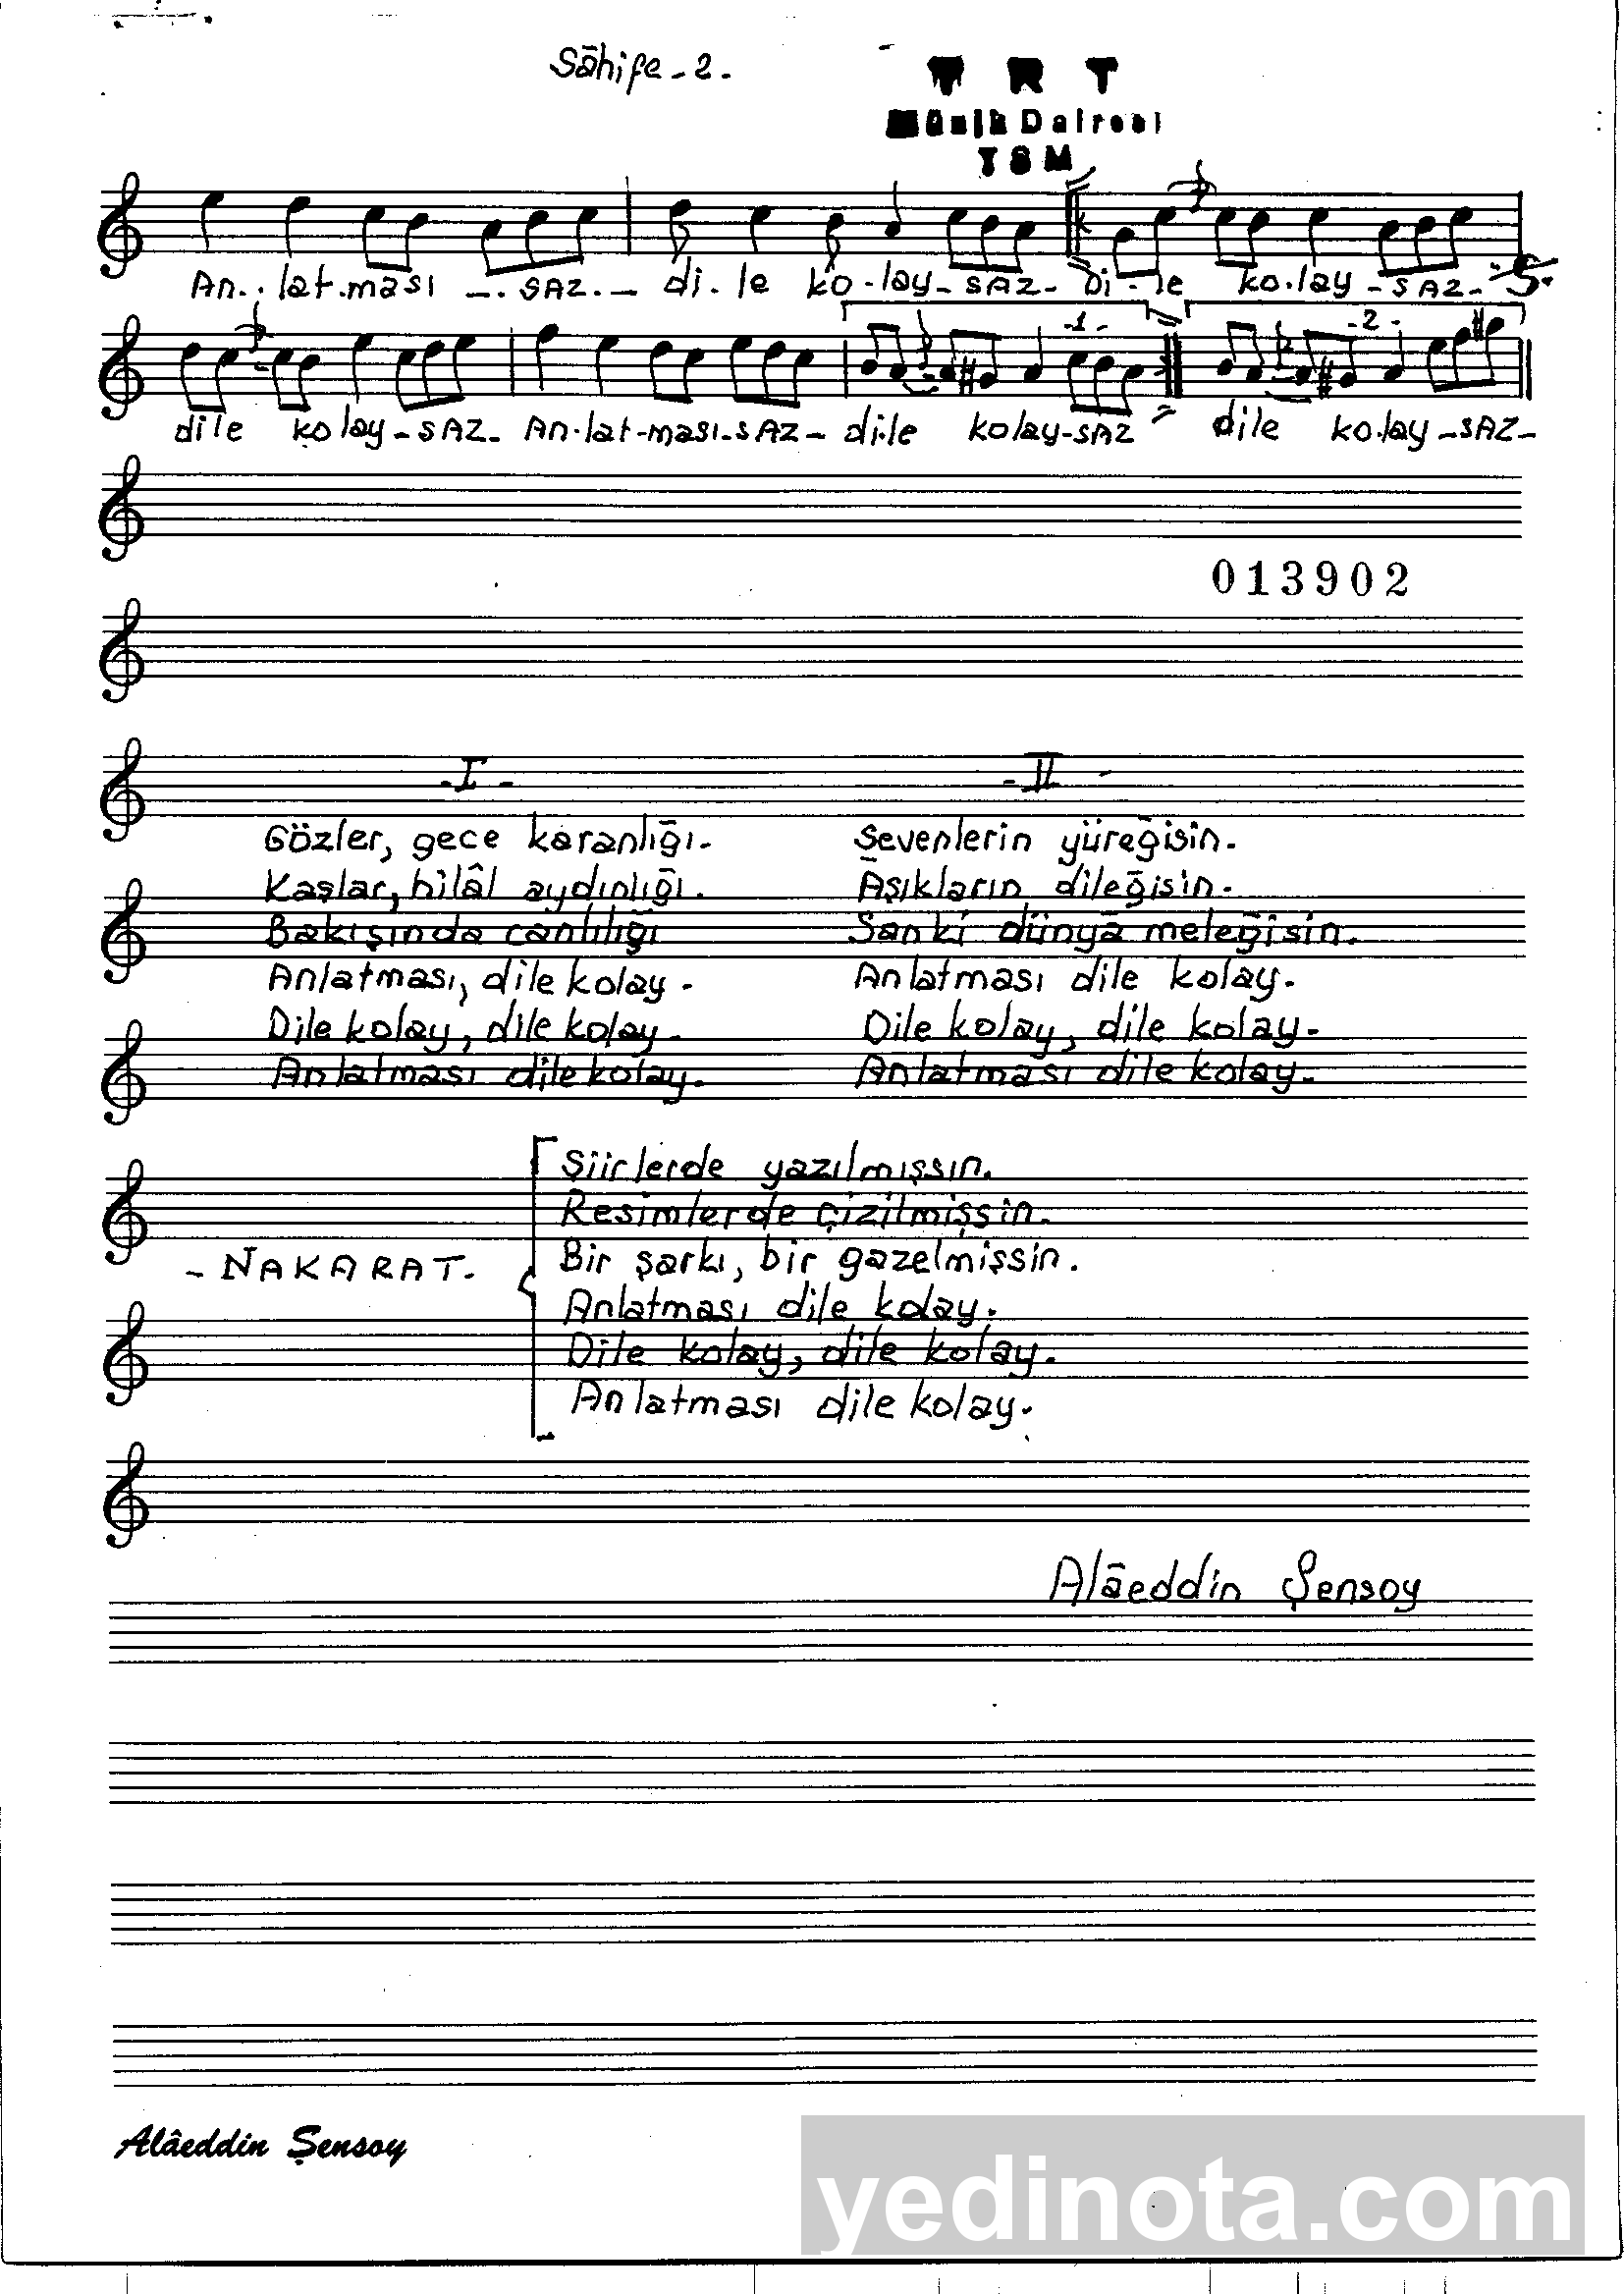 Sāhife - 2 -
T R T
Müzik Dairesi
TSM
An.. lat.ması -. SAZ.- di. le ko.lay- SAZ- Di - le ko.lay - SAZ -
-1- -2-
dile kolay - SAZ - An.lat-ması-SAZ - di.le kolay-SAZ dile ko.lay - SAZ -
013902
- I - - II -
Gözler, gece karanlığı. Sevenlerin yüreğisin.
Kaşlar, hilâl aydınlığı. Aşıkların dileğisin.
Bakışında canlılığı Sanki dünyā meleğisin.
Anlatması, dile kolay. Anlatması dile kolay.
Dile kolay, dile kolay. Dile kolay, dile kolay.
Anlatması dile kolay. Anlatması dile kolay.
Şiirlerde yazılmışsın.
Resimlerde çizilmişsin.
- NAKARAT. Bir şarkı, bir gazelmişsin.
Anlatması dile kolay.
Dile kolay, dile kolay.
Anlatması dile kolay.
Alâeddin Şensoy
Alâeddin Şensoy
yedinota.com